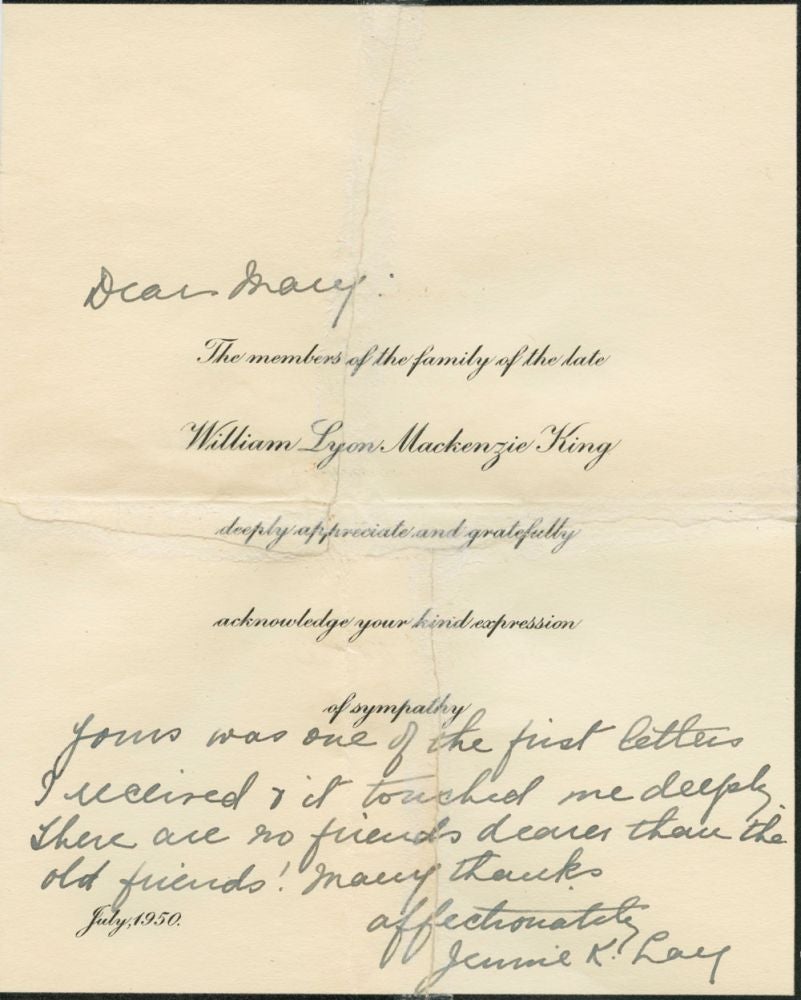 Dear Mary:
The members of the family of the late
William Lyon Mackenzie King
deeply appreciate and gratefully
acknowledge your kind expression
of sympathy
Yours was one of the first letters
I received & it touched me deeply.
There are no friends dearer than the
old friends! Many thanks
July, 1950.
affectionately
Jennie K. Lay